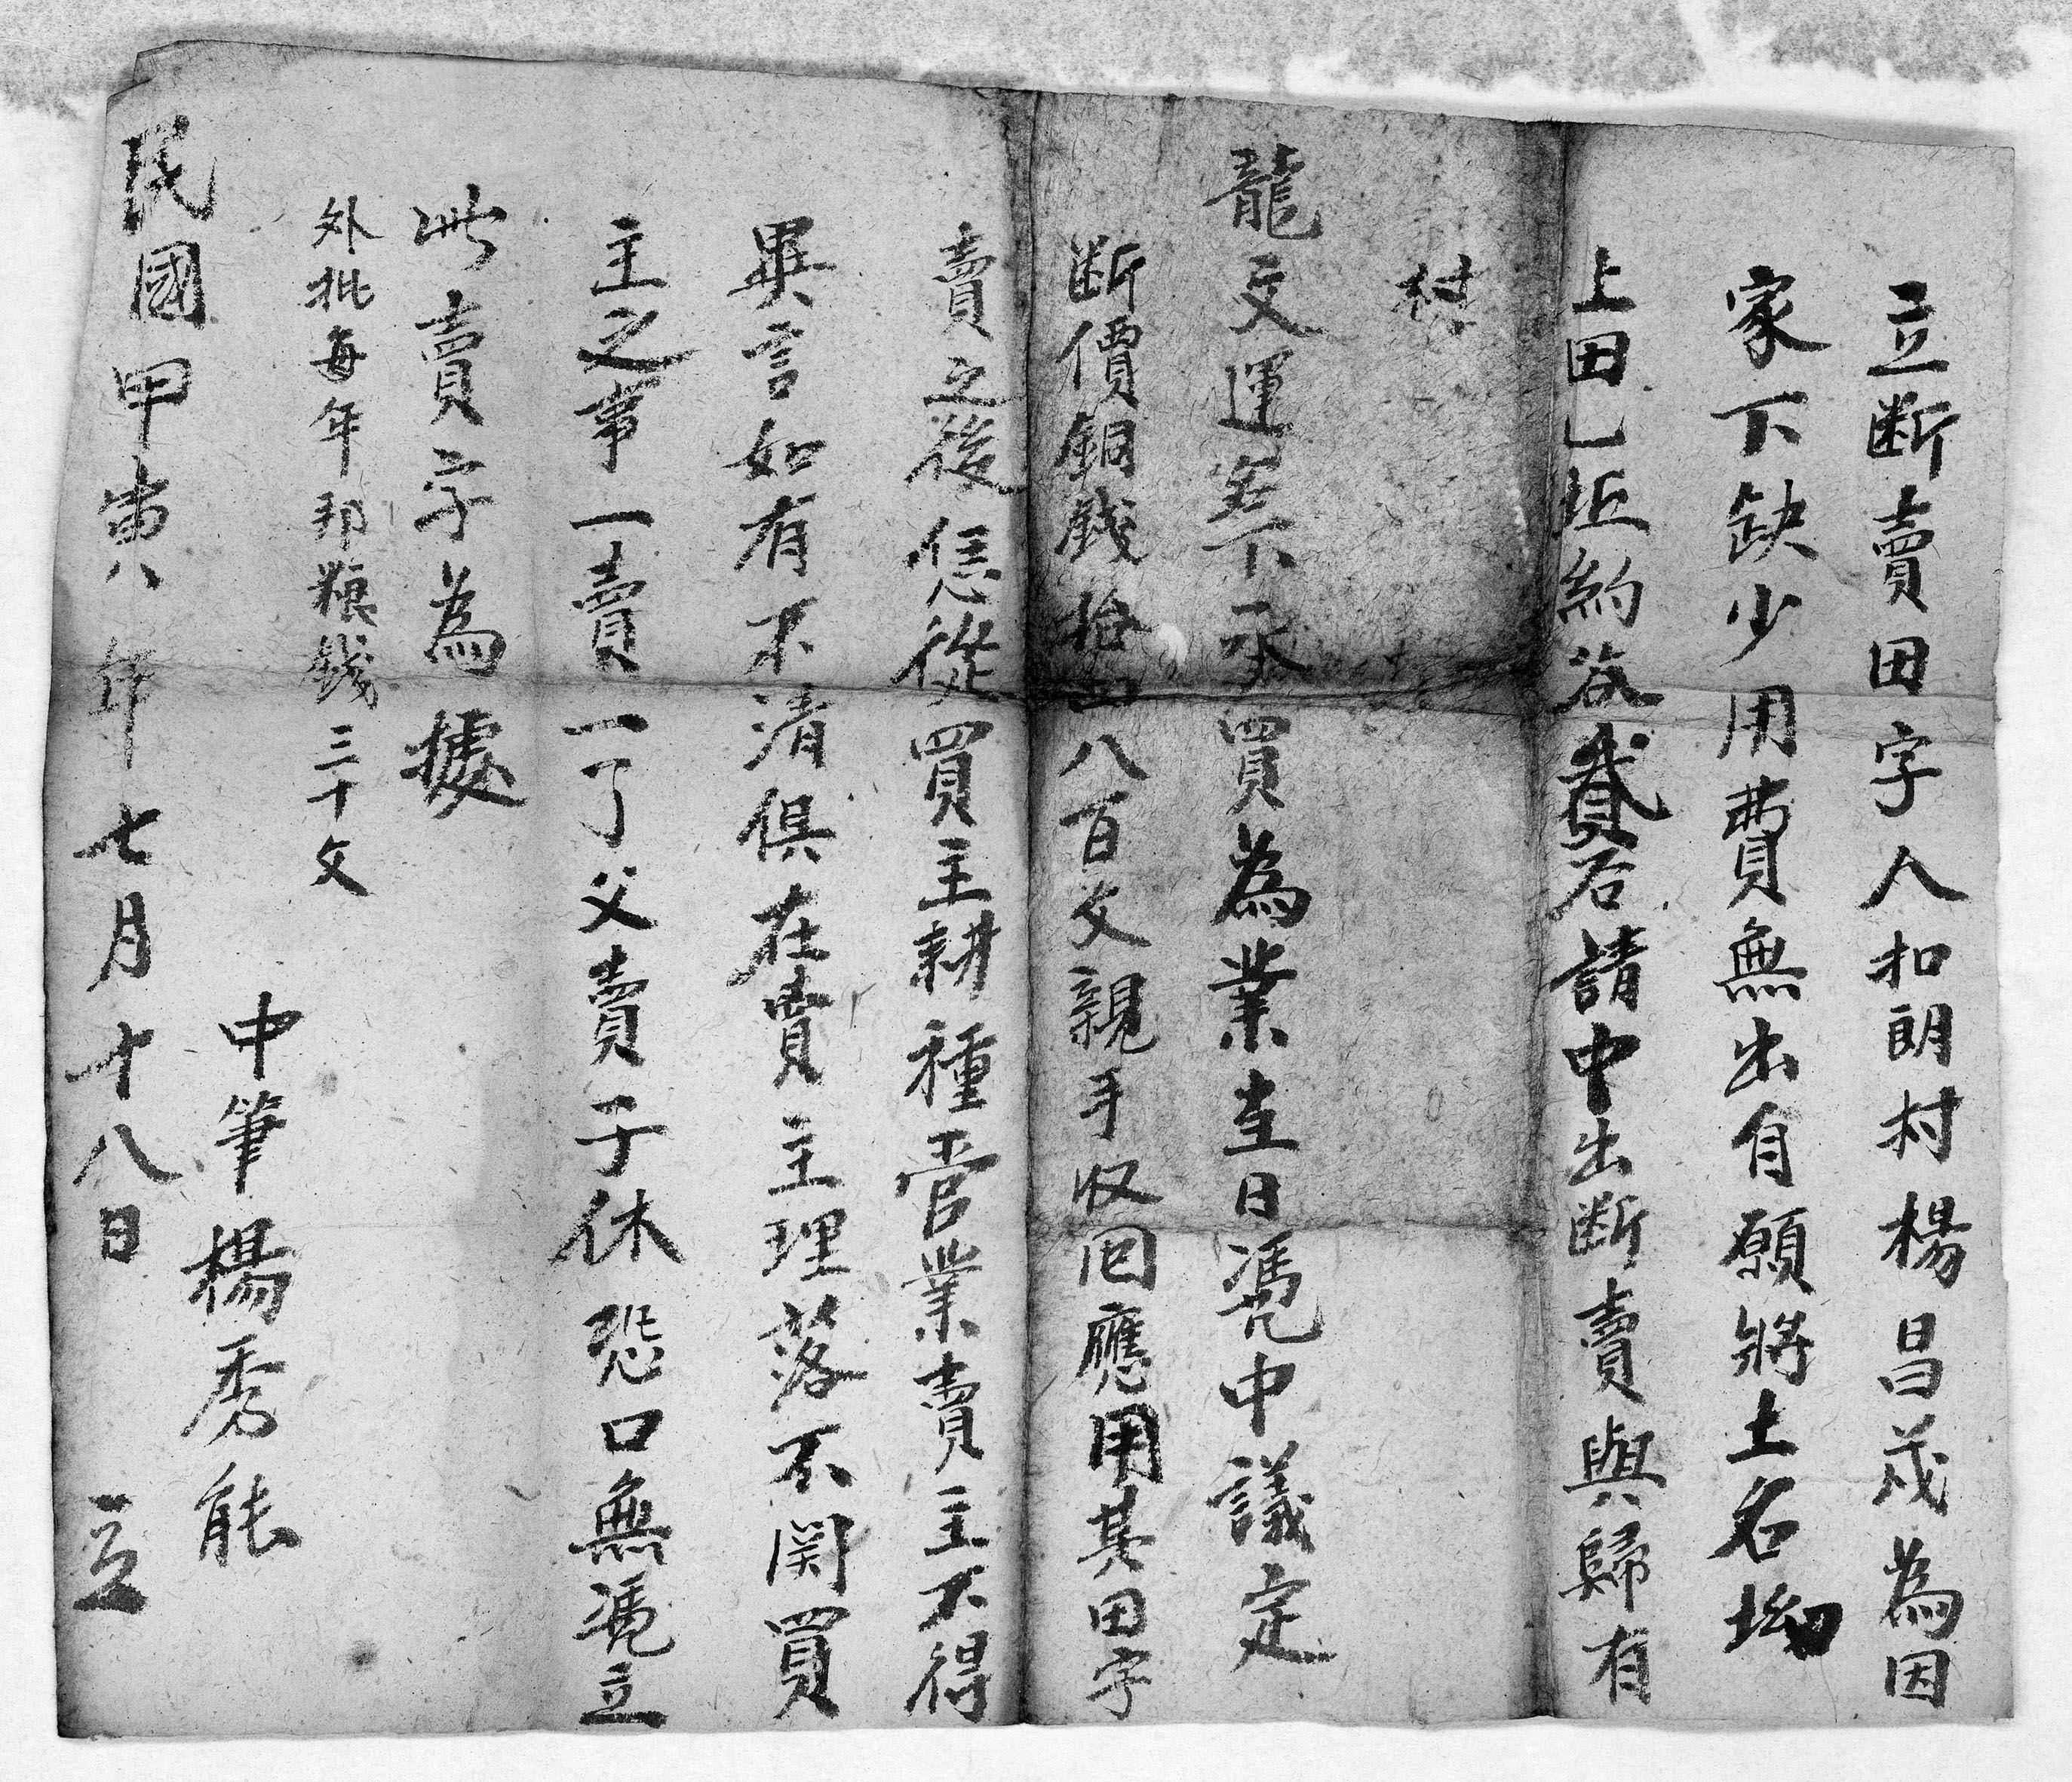 立断賣田字人扣朗村楊昌茂為因
家下缺少用費無出自願將土名坳
上田乚坵約谷貳石請中出断賣與歸有
村
龍交運名下承買為業主日憑中議定
断價銅錢拾四八百文親手収囘應用其田字
賣之後恁從買主耕種管業賣主不得
異言如有不清俱在賣主理落不関買
主之事一賣一了父賣子休恐口無憑立
此賣字為據
外批每年邦粮錢三十文
中筆楊秀能
民國甲寅八年七月十八日 立